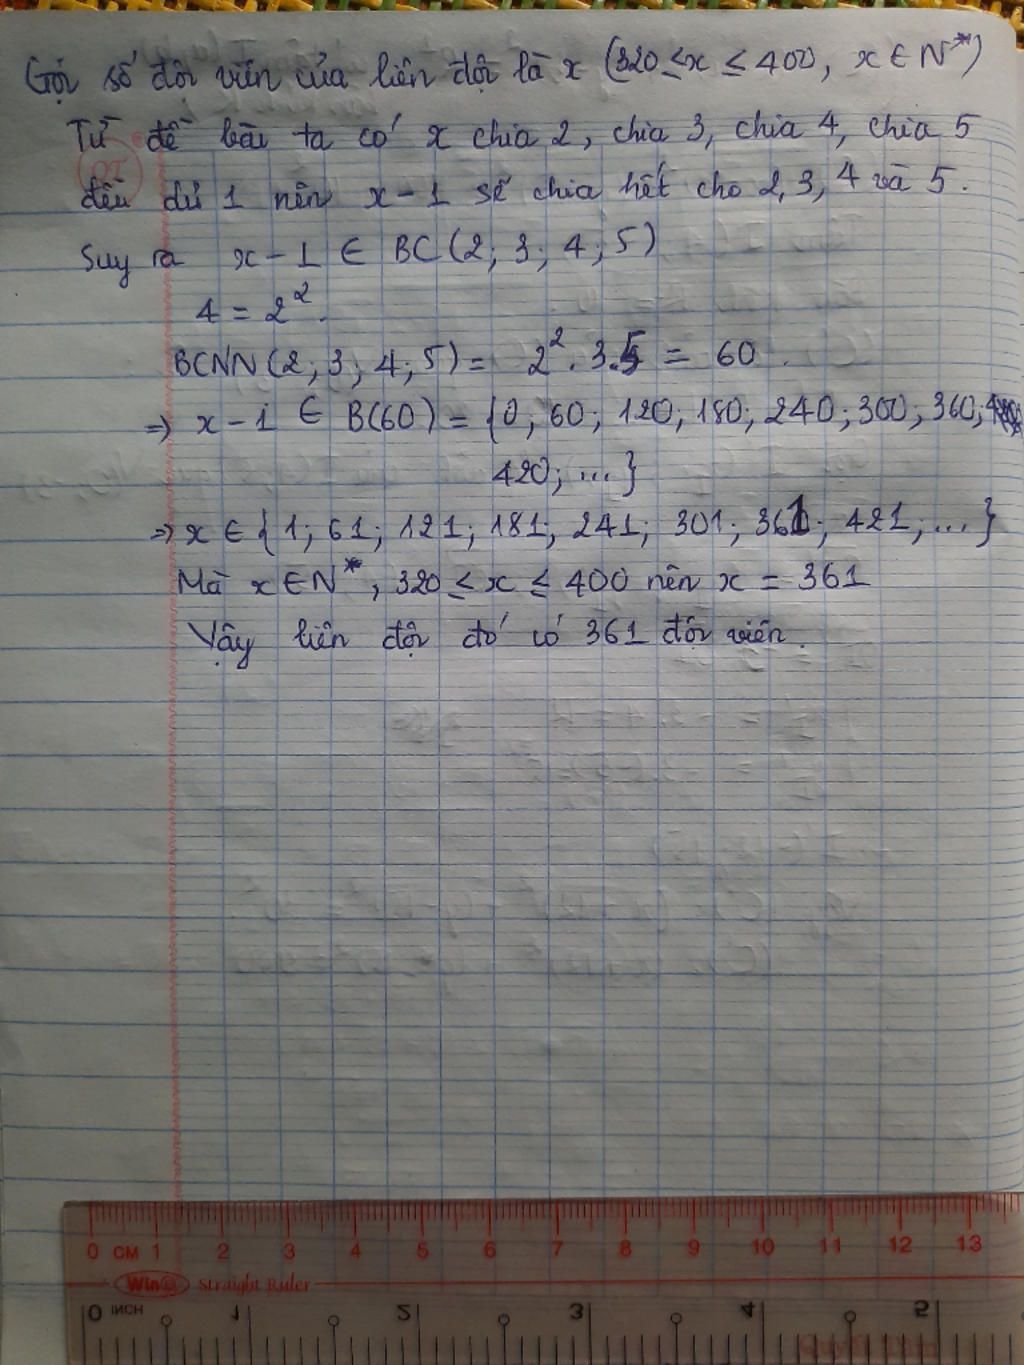 Gọi số đội viên của liên đội là x (320 ≤ x ≤ 400, x ∈ N*)
Từ đề bài ta có x chia 2, chia 3, chia 4, chia 5
đều dư 1 nên x - 1 sẽ chia hết cho 2, 3, 4 và 5.
Suy ra x - 1 ∈ BC (2; 3; 4; 5)
4 = 2².
BCNN (2; 3; 4; 5) = 2² . 3. 5 = 60.
⇒ x - 1 ∈ B(60) = {0; 60; 120; 180; 240; 300; 360;
420; ...}
⇒ x ∈ {1; 61; 121; 181; 241; 301; 361; 421; ...}
Mà x ∈ N*, 320 ≤ x ≤ 400 nên x = 361
Vậy liên đội đó có 361 đội viên.
0 CM 1 2 3 4 5 6 7 8 9 10 11 12 13
Win Straight Ruler
0 INCH 1 2 3 4 5